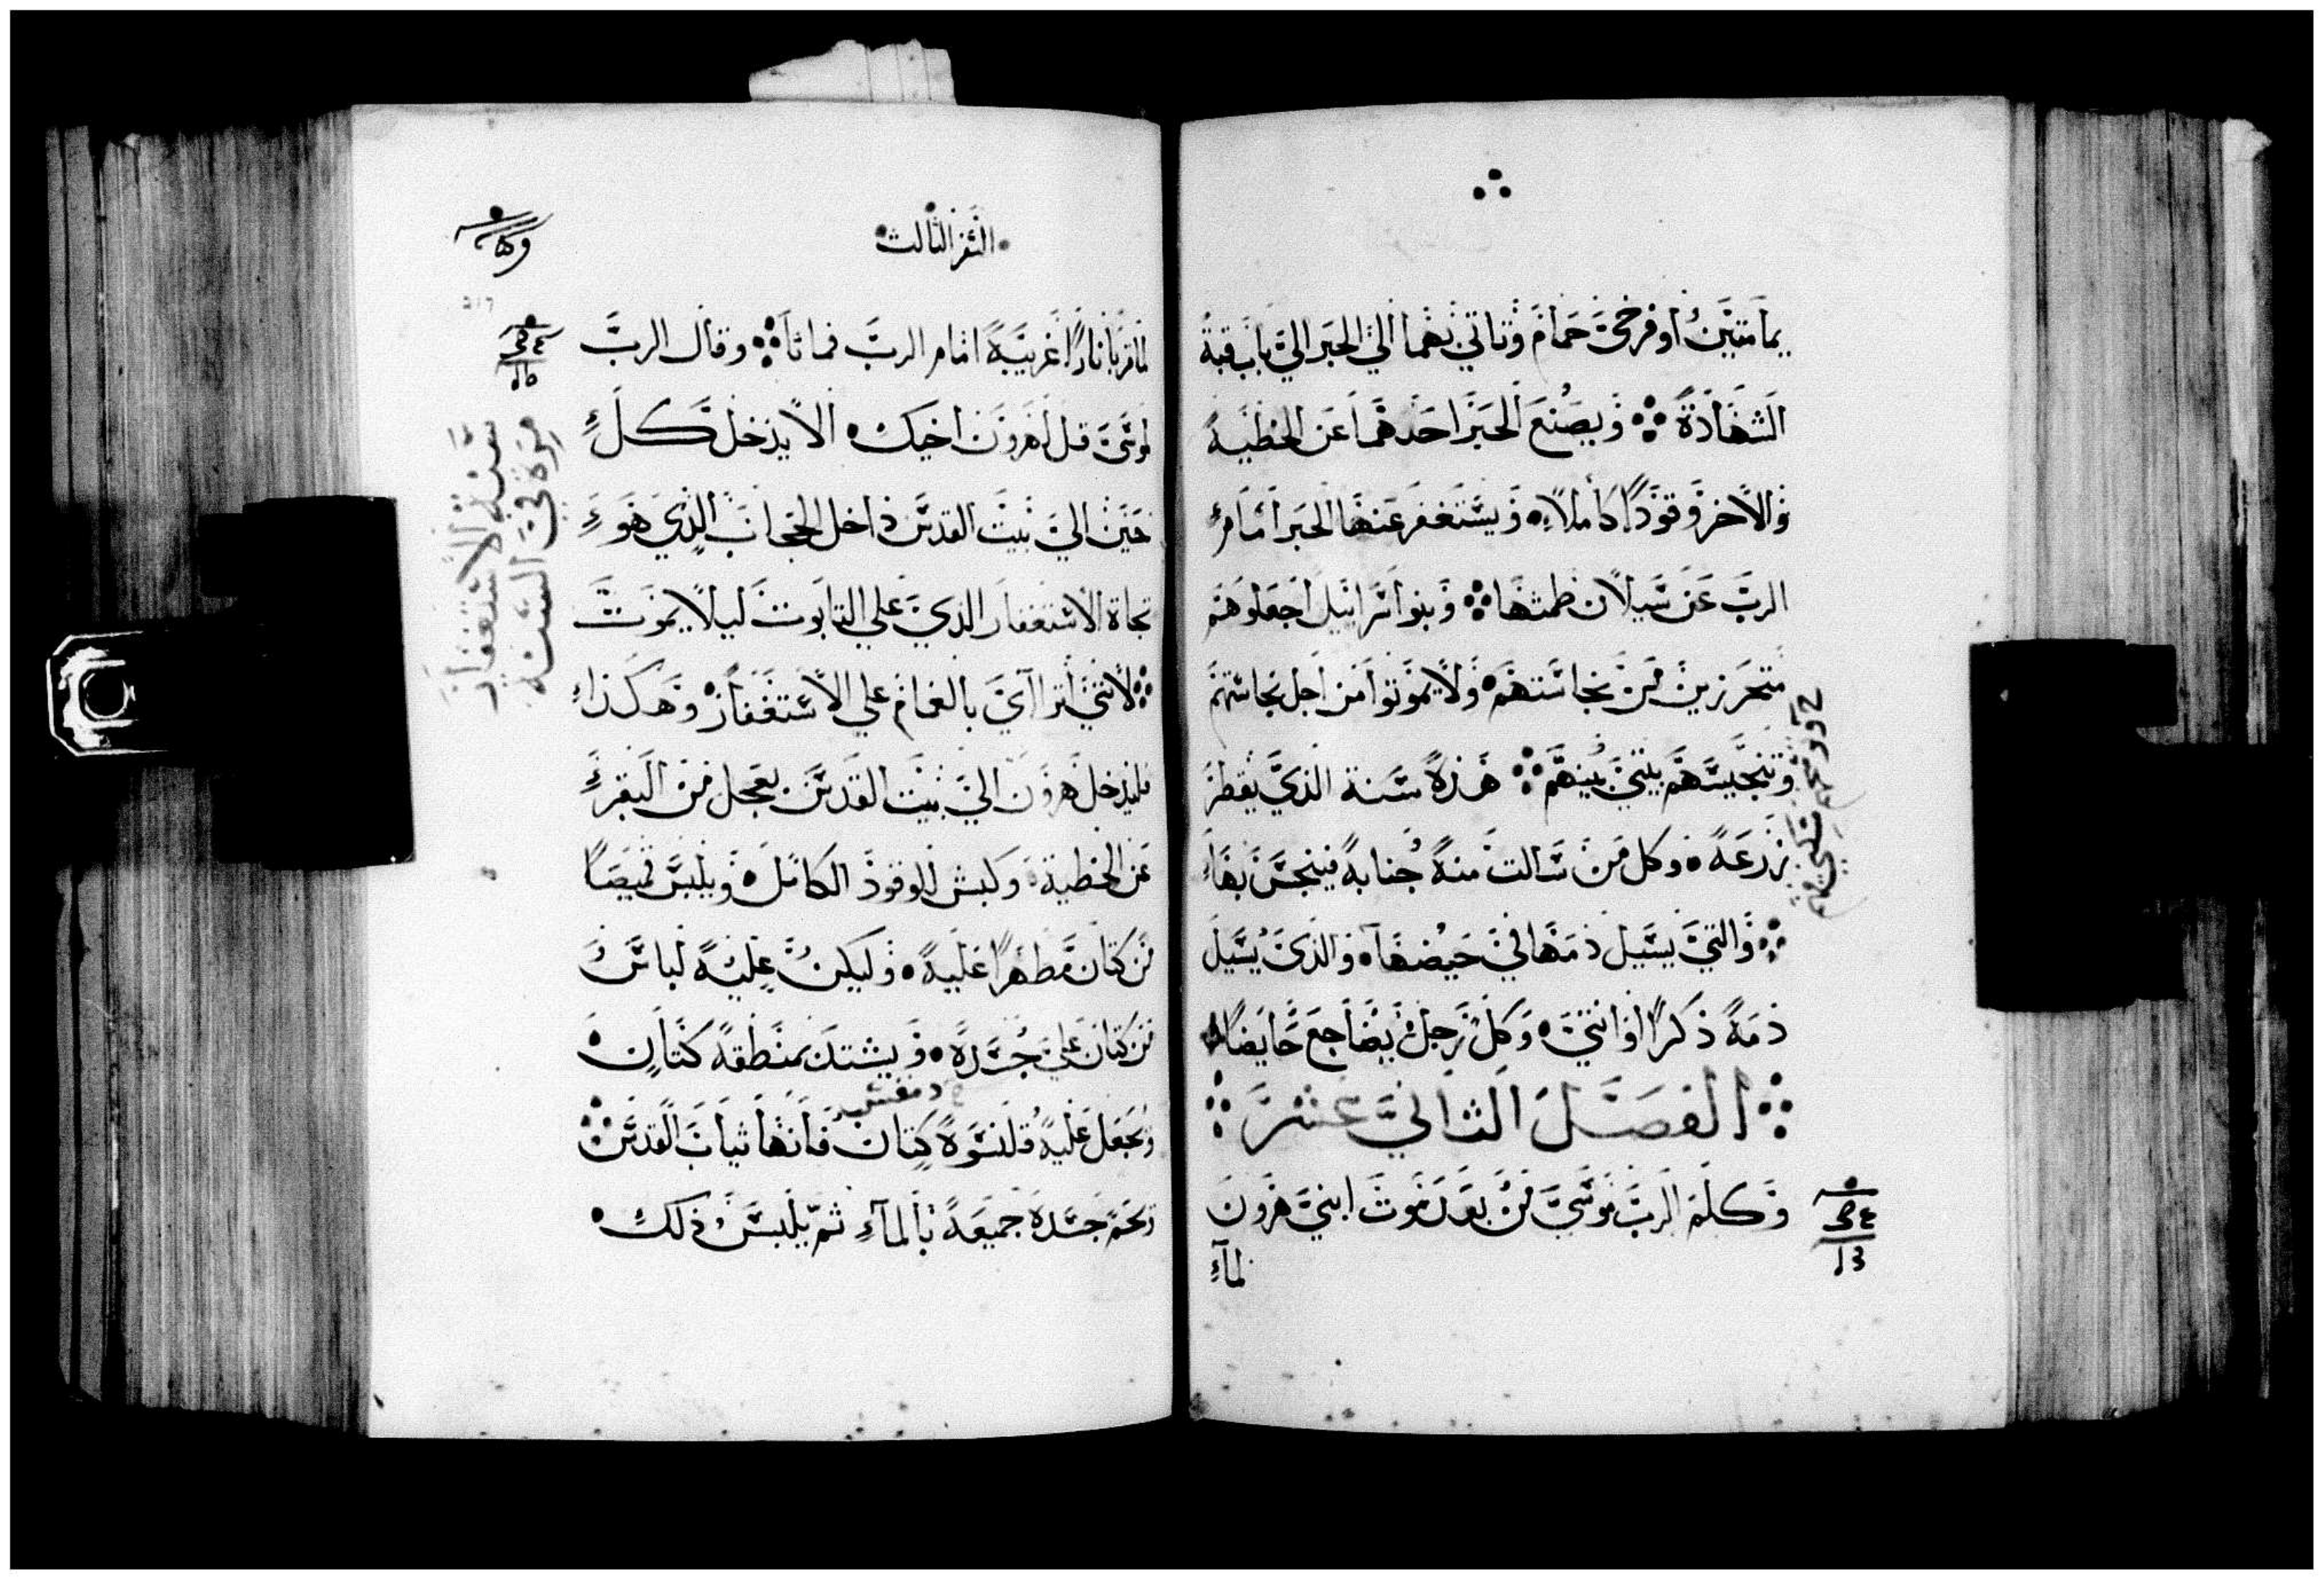 يمامتين او فرخي حمام وتاتي بهما الي الحبر الي باب قبة
الشهادة ويصنع الحبر احدهما عن الخطية
والاخر وقودًا كاملاً ويستغفر عنها الحبر امام
الرب عن سيلان طمثها وبنوا اسراييل اجعلوهم
متحرزين من نجاستهم ولا يموتوا من اجل نجاستهم
وتنجيسهم بيتي بينهم هذه سنة الذي يقطر
زرعه وكل من سالت منه جنابة فينجس بها
والتي يسيل دمها في حيضها والذي يسيل
دمه ذكرًا او انثي وكل رجل يضاجع حايضًا
الفصل الثاني عشر
وكلم الرب موسي من بعد موت ابني هرون
لما
السفر الثالث
لما قربا نارًا غريبة امام الرب فماتا وقال الرب
لموسي قل لهرون اخيك الا يدخل كل
حين الي بيت القدس داخل الحجاب الذي هو
تجاة الاستغفار الذي علي التابوت ليلا يموت
لانني اتراآي بالغمام علي الاستغفار وهكذا
فليدخل هرون الي بيت القدس بعجل من البقر
عن الخطية وكبش للوقود الكامل ويلبس قميصًا
من كتان مطهرًا عليه وليكن عليه لباس
من كتان علي جسده ويشتد بمنطقة كتان
ويجعل عليه قلنسوة كتان فانها ثياب القدس
يحم جسده جميعه بالمآء ثم يلبس ذلك
سنة الاستغفار
مرة في السنة